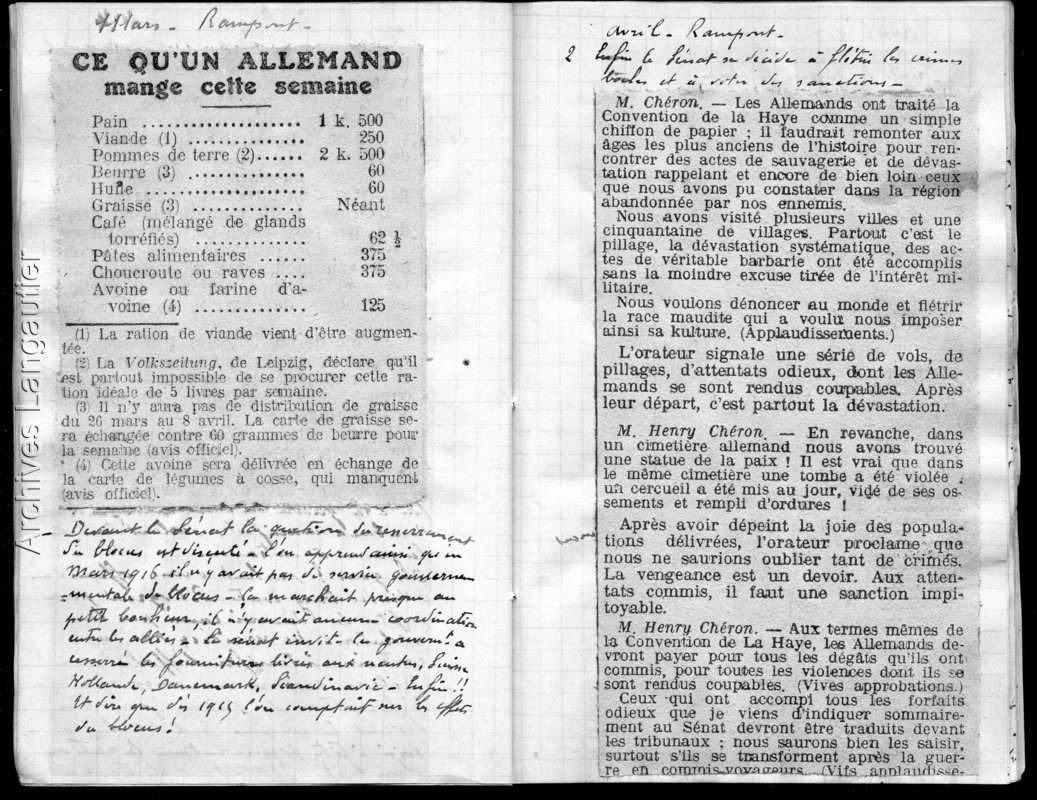 Mars - Rampont -
CE QU'UN ALLEMAND
mange cette semaine
Pain .................... 1 k. 500
Viande (1) ............... 250
Pommes de terre (2)...... 2 k. 500
Beurre (3) ............... 60
Huile .................... 60
Graisse (3) .............. Néant
Café (mélangé de glands
torréfiés) .............. 62 ½
Pâtes alimentaires ...... 375
Choucroute ou raves .... 375
Avoine ou farine d'a-
voine (4) .............. 125
(1) La ration de viande vient d'être augmen-
tée.
(2) La Volkszeitung, de Leipzig, déclare qu'il
est partout impossible de se procurer cette ra-
tion idéale de 5 livres par semaine.
(3) Il n'y aura pas de distribution de graisse
du 26 mars au 8 avril. La carte de graisse se-
ra échangée contre 60 grammes de beurre pour
la semaine (avis officiel).
(4) Cette avoine sera délivrée en échange de
la carte de légumes à cosse, qui manquent
(avis officiel).
Devant le Sénat la question du resserrement
du blocus est discutée - l'on apprend ainsi qu'en
Mars 1916 il n'y avait pas de service gouverne
-mentale du blocus - Ca marchait presque au
petit bonheur, il n'y avait aucune coordination
entre les alliés - Le sénat invite le gouvernt à
resserrer les fournitures livrées aux neutres, Suisse
Hollande, Danemark, Scandinavie - Enfin !!
Et dire que dès 1915 l'on comptait sur les effets
du blocus !
Archives Langautier
avril - Rampont -
2 Enfin le Sénat se décide à flétrir les crimes
boches et à voter des sanctions -
M. Chéron. — Les Allemands ont traité la
Convention de la Haye comme un simple
chiffon de papier ; il faudrait remonter aux
âges les plus anciens de l'histoire pour ren-
contrer des actes de sauvagerie et de dévas-
tation rappelant et encore de bien loin ceux
que nous avons pu constater dans la région
abandonnée par nos ennemis.
Nous avons visité plusieurs villes et une
cinquantaine de villages. Partout c'est le
pillage, la dévastation systématique, des ac-
tes de véritable barbarie ont été accomplis
sans la moindre excuse tirée de l'intérêt mi-
litaire.
Nous voulons dénoncer au monde et flétrir
la race maudite qui a voulu nous imposer
ainsi sa kulture. (Applaudissements.)
L'orateur signale une série de vols, de
pillages, d'attentats odieux, dont les Alle-
mands se sont rendus coupables. Après
leur départ, c'est partout la dévastation.
M. Henry Chéron. — En revanche, dans
un cimetière allemand nous avons trouvé
une statue de la paix ! Il est vrai que dans
le même cimetière une tombe a été violée ;
un cercueil a été mis au jour, vidé de ses os-
sements et rempli d'ordures !
Après avoir dépeint la joie des popula-
tions délivrées, l'orateur proclame que
nous ne saurions oublier tant de crimes.
La vengeance est un devoir. Aux atten-
tats commis, il faut une sanction impi-
toyable.
M. Henry Chéron. — Aux termes mêmes de
la Convention de La Haye, les Allemands de-
vront payer pour tous les dégâts qu'ils ont
commis, pour toutes les violences dont ils se
sont rendus coupables. (Vives approbations.)
Ceux qui ont accompi tous les forfaits
odieux que je viens d'indiquer sommaire-
ment au Sénat devront être traduits devant
les tribunaux ; nous saurons bien les saisir,
surtout s'ils se transforment après la guer-
re en commis-voyageurs. (Vifs applaudisse-